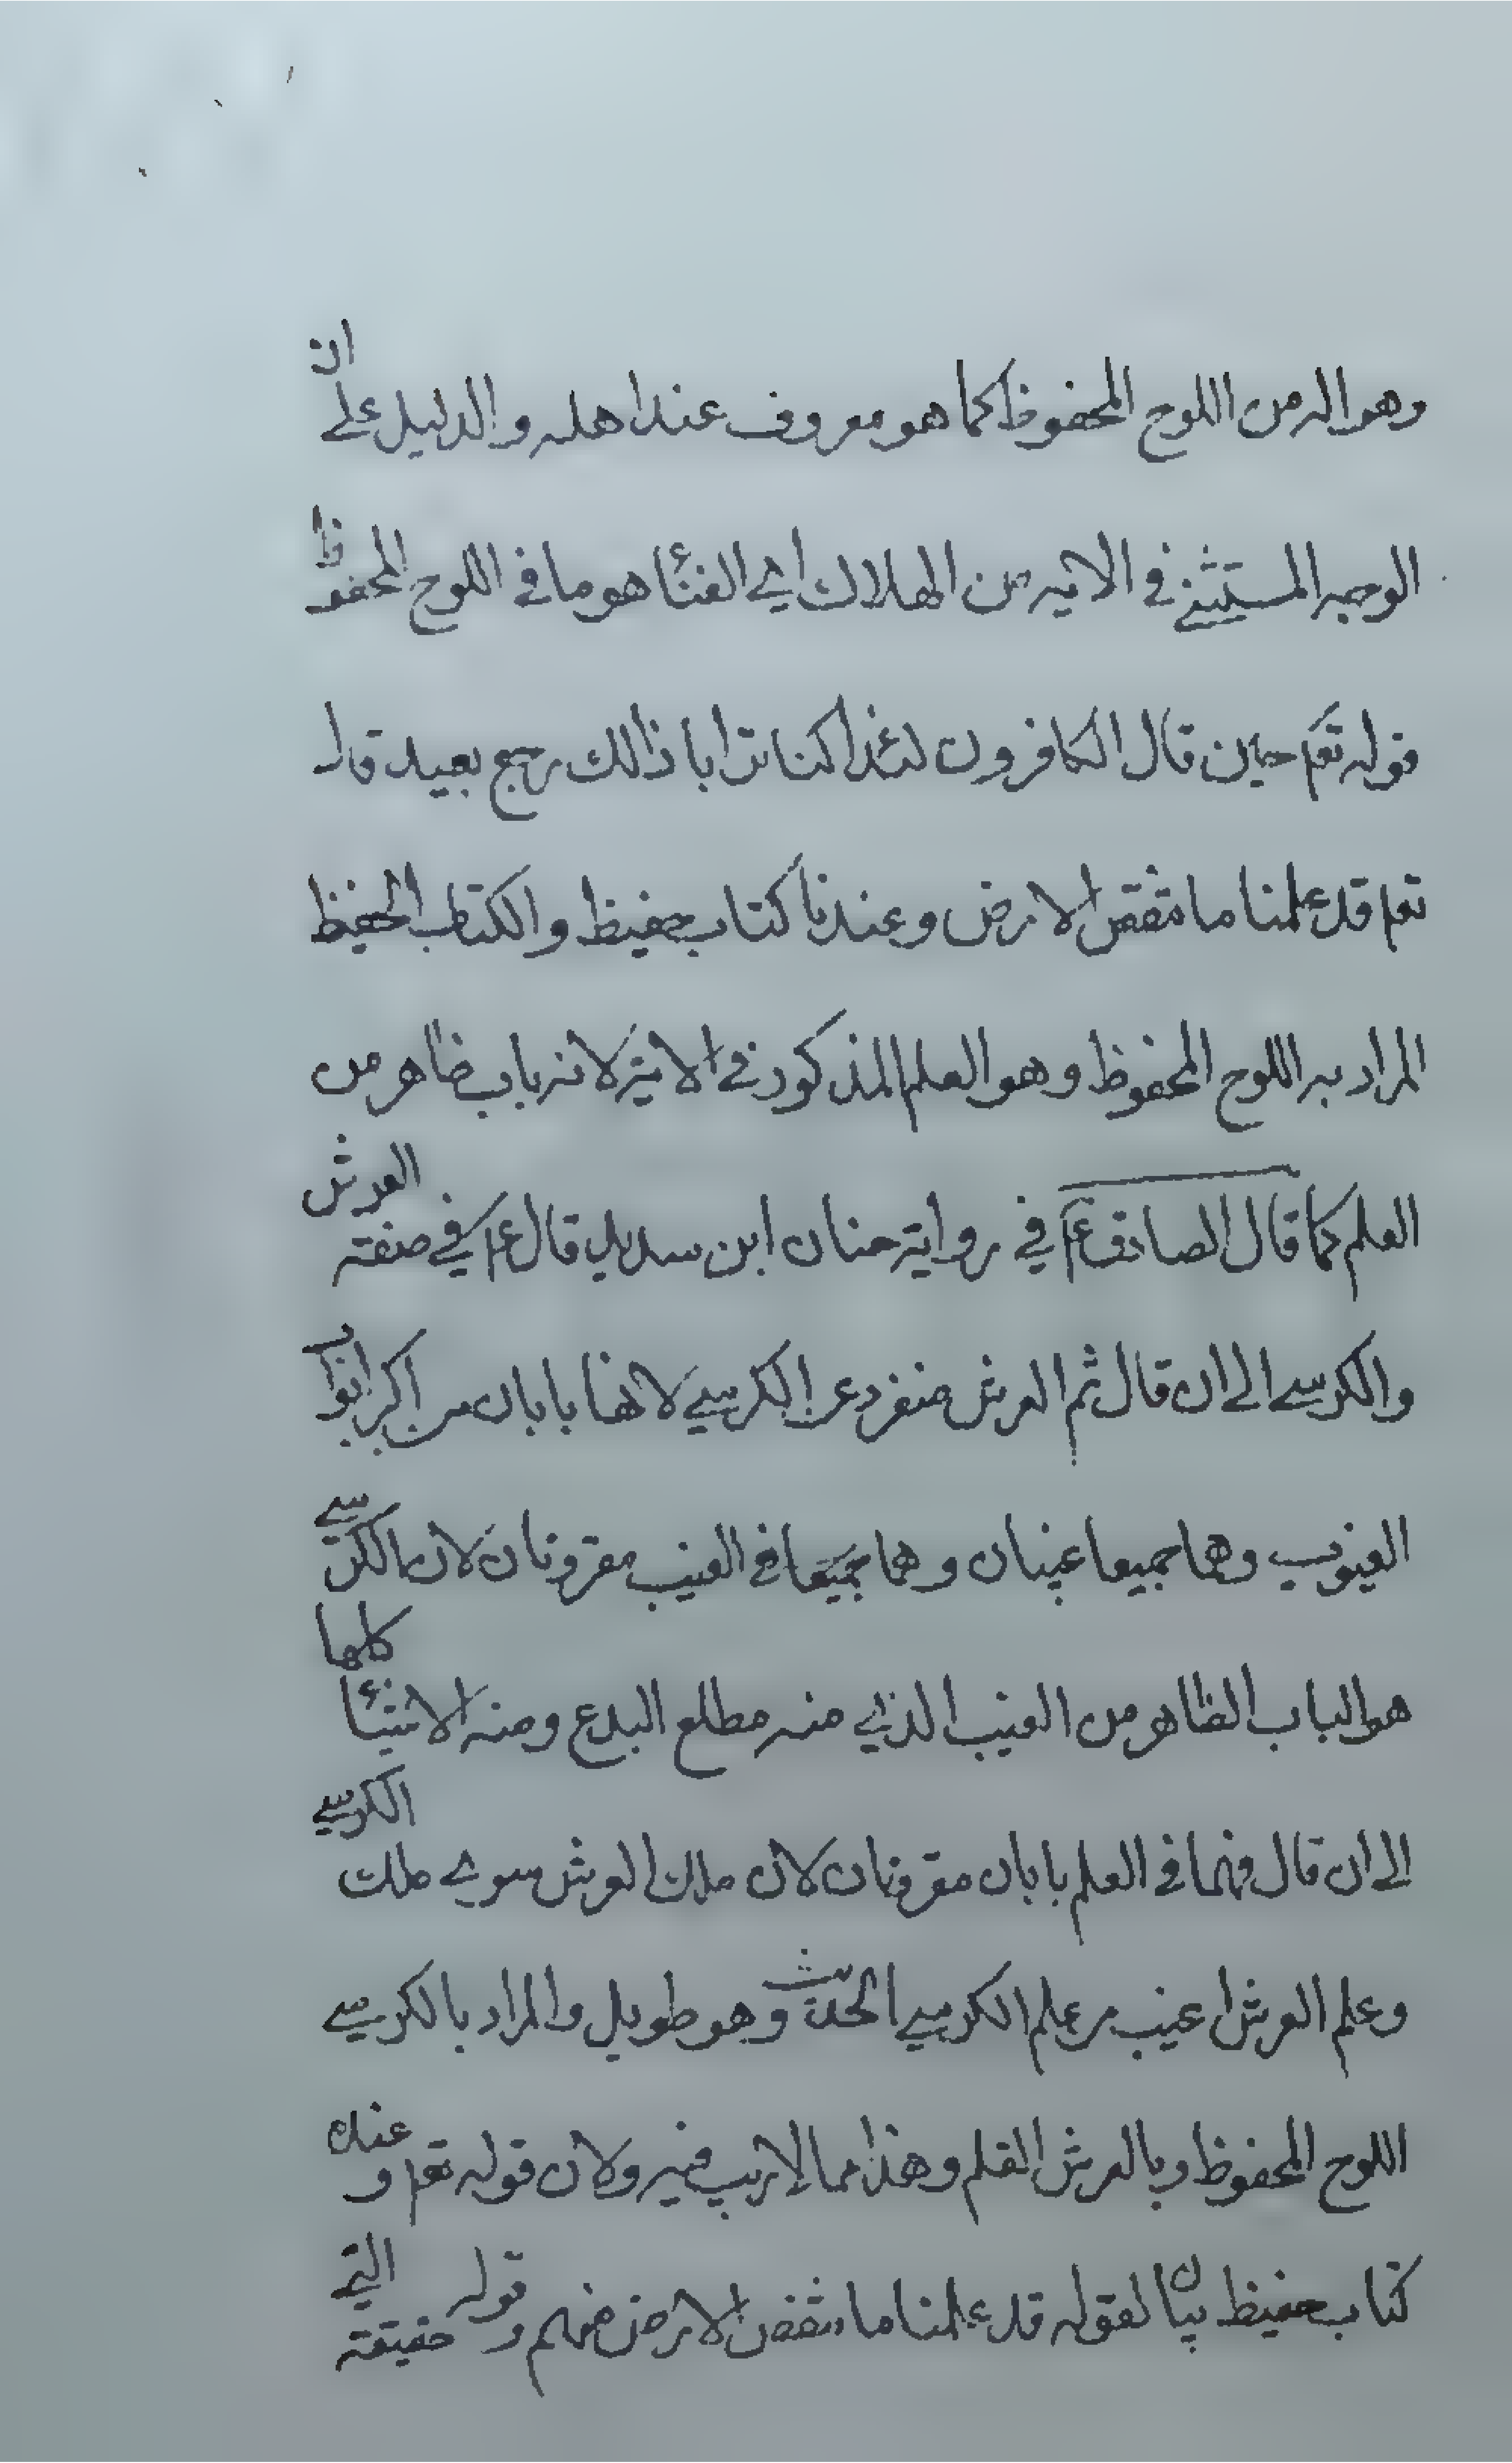 وهو اله من اللوح المحفوظ كما هو معروف عند اهله والدليل على ان
الوجه المستثنى في الايه من الهلاك اي الفنئا هو ما في اللوح المحفوظ
قوله تعم حين قال الكافرون لئذا كنا ترابا ذالك رجع بعيد قال
تعم قد علمنا ما تنقص الارض وعندنا كتاب حفيظ والكتاب الحفيظ
المراد به اللوح المحفوظ وهو العلم المذكور في الاية لانه باب ظاهر من
العلم كما قال الصادق عم في رواية حنان ابن سدير قال عم في صفته العرش
والكرسي الى ان قال ثم العرش منفرد عن الكرسي لانهما بابان من اكبر ابواب
الغيوب وهما جميعا غيبان وهما جميعا في الغيب مقرونان لان الكرسي
هو الباب الظاهر من الغيب الذي منه مطلع البدع ومنه الاشيئا كلها
الى ان قال فهما في العلم بابان مقرونان لان ملك العرش سوى ملك الكرسي
وعلم العرش اغيب من علم الكرسي الحديث وهو طويل والمراد بالكرسي
اللوح المحفوظ وبالعرش القلم وهذا مما لا ريب فيه ولان قوله تعم وعندنا
كتاب حفيظ بيان لقوله قد علمنا ما تنقص الارض منهم وقوله حقيقته التي